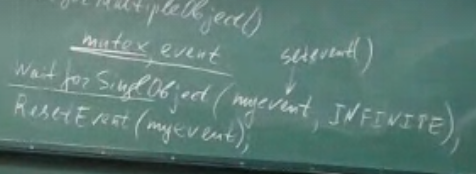 forMultipleObject()
mutex, event setevent()
Wait for SinglObject (myevent, INFINITE),
ResetEvent (myevent);